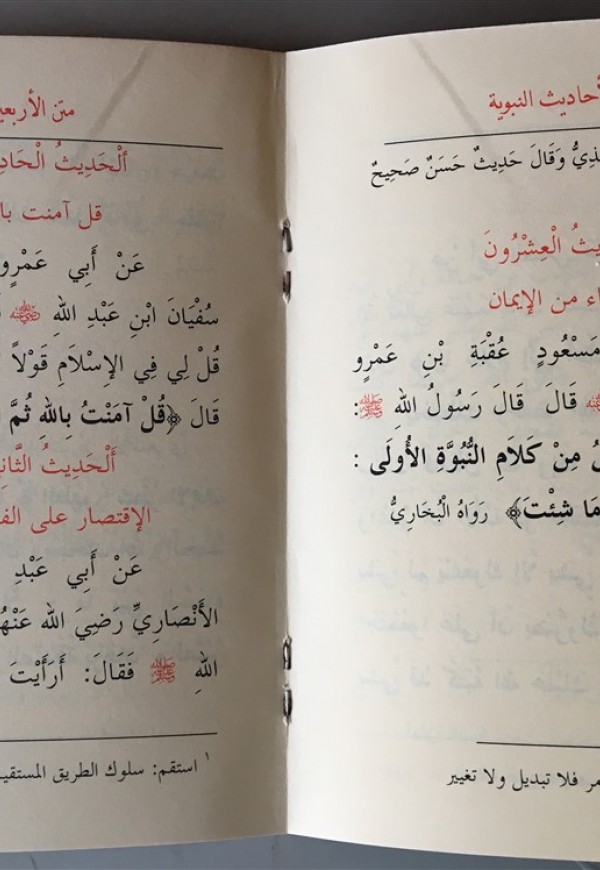 النبوية
وَقَالَ حَدِيثٌ حَسَنٌ صَحِيحٌ
الْعِشْرُونَ
من الإيمان
مَسْعُودٍ عُقْبَةَ بْنِ عَمْرِو
قَالَ قَالَ رَسُولُ اللهِ ﷺ :
مِنْ كَلَامِ النُّبُوَّةِ الْأُولَى :
مَا شِئْتَ﴾ رَوَاهُ الْبُخَارِيُّ
فلا تبديل ولا تغيير
متن
ألْحَدِيثُ
قل آمنت
عَنْ أَبِي عَمْرٍو
سُفْيَانَ ابْنِ عَبْدِ اللهِ ﷺ
قُلْ لِي فِي الإِسْلَامِ قَوْلاً
قَالَ ﴿قُلْ آمَنْتُ بِاللهِ ثُمَّ
ألْحَدِيثُ
الإقتصار على
عَنْ أَبِي عَبْدِ
الأَنْصَارِيِّ رَضِيَ الله
اللهِ ﷺ فَقَالَ: أَرَأَيْتَ
١ استقم: سلوك الطريق